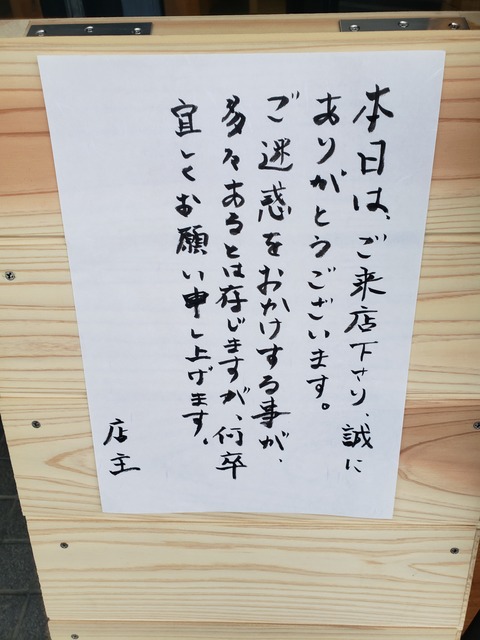 本日は、ご来店下さり、誠に
ありがとうございます。
ご迷惑をおかけする事が、
多々あるとは存じますが、何卒
宜しくお願い申し上げます。
店主